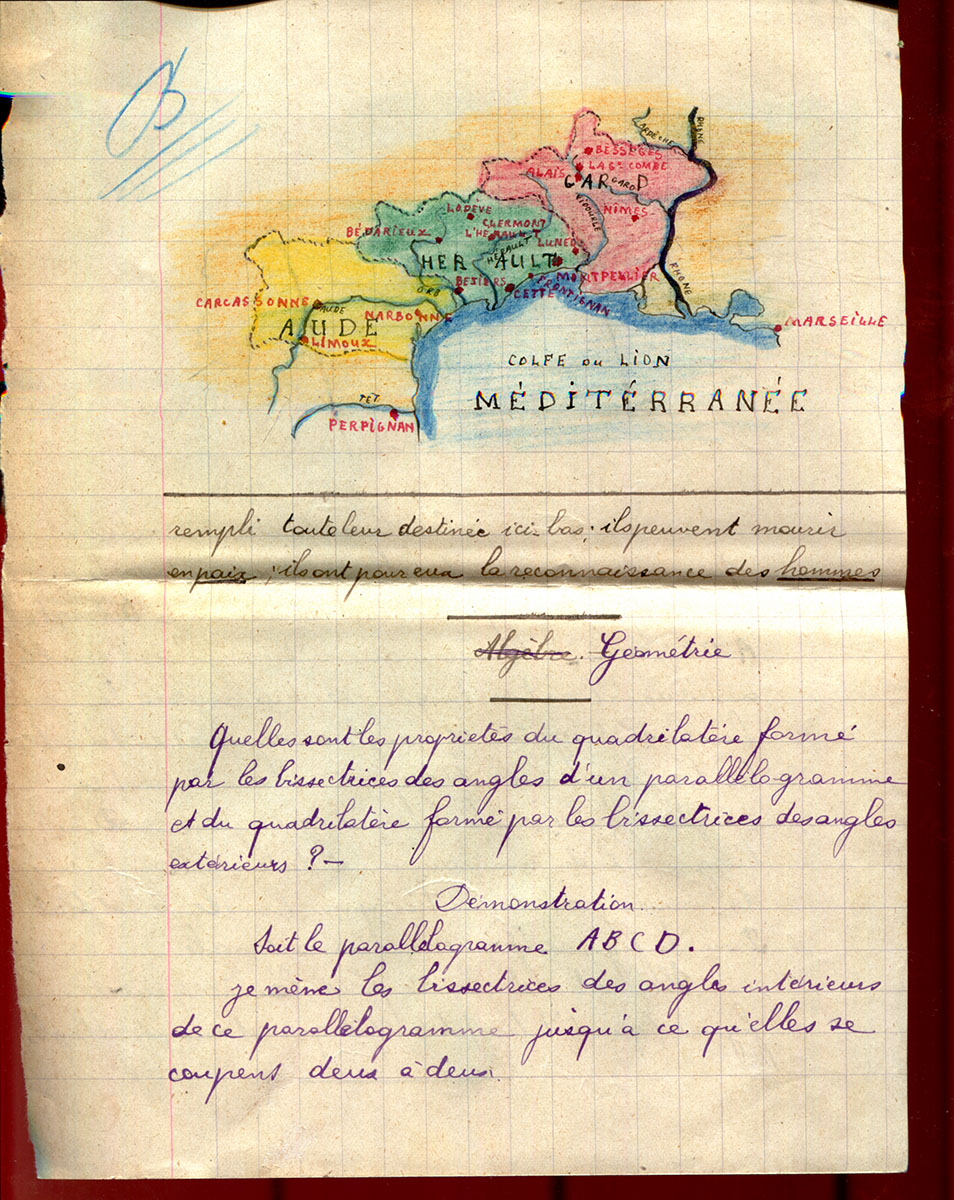 B
ARDÈCHE
RHONE
BESSÈGES
LA Gᵈ COMBE
ALAIS
GARD
GARD
VIDOURLE
NIMES
LODEVE
CLERMONT
L'HÉRAULT
BÉDARIEUX
HÉRAULT
LUNEL
HERAULT
MONTPELLIER
RHONE
ORB
BESIERS
CETTE
FRONTIGNAN
CARCASSONNE
AUDE
NARBONNE
MARSEILLE
AUDE
LIMOUX
GOLFE DU LION
TET
MÉDITÉRRANÉE
PERPIGNAN
rempli toute leur destinée ici-bas; ils peuvent mourir
en paix; ils ont pour eux la reconnaissance des hommes
Algèbre. Géométrie
Quelles sont les propriétés du quadrilatère formé
par les bissectrices des angles d'un parallélogramme
et du quadrilatère formé par les bissectrices des angles
extérieurs ? –
Démonstration
Soit le parallélogramme ABCD.
je mène les bissectrices des angles intérieurs
de ce parallélogramme jusqu'à ce qu'elles se
coupent deux à deux.